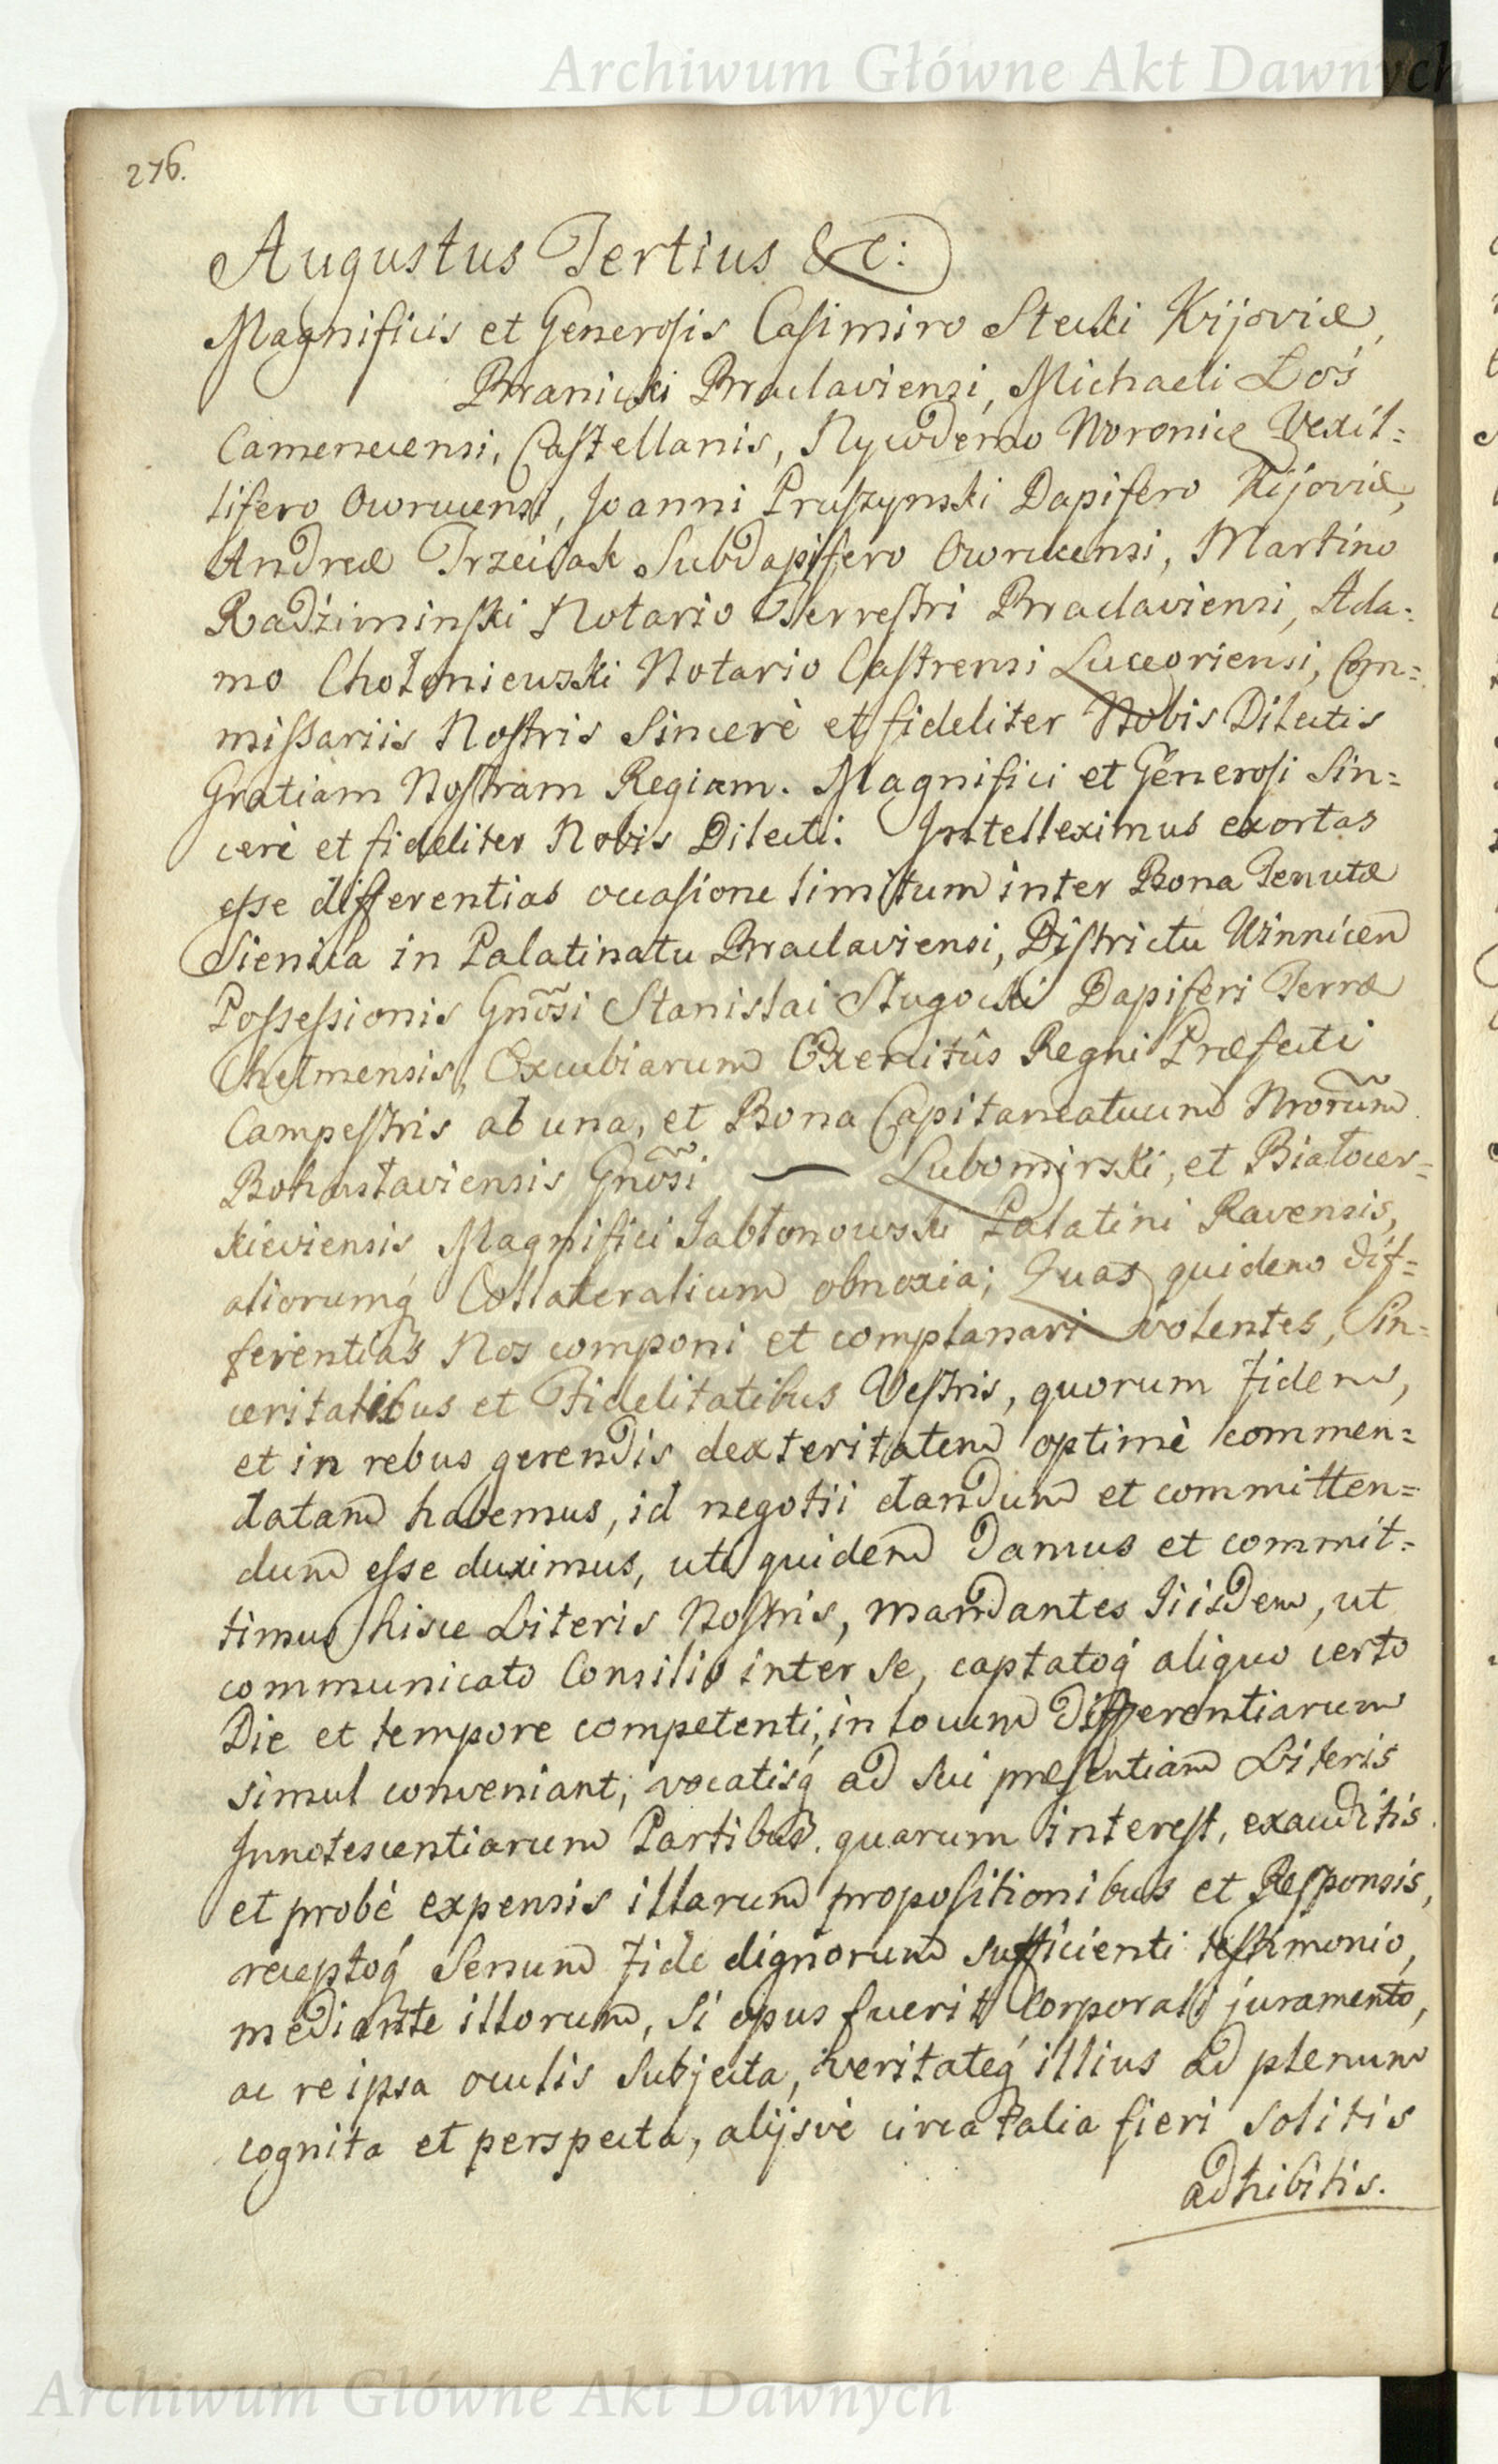 Archiwum Główne Akt Dawnych
276.
Augustus Tertius &c:
Magnificis et Generosis Casimiro Stecki Kijoviæ,
Branicki Braclaviensi, Michaeli Łoś
Camenecensi, Castellanis, Nycodemo Woronicz Vexil=
lifero Owrucensi, Joanni Pruszynski Dapifero Kijoviæ,
Andreæ Trzeciak Subdapifero Owrucensi, Martino
Radziminski Notario Terrestri Braclaviensi, Ada=
mo Chołoniewski Notario Castrensi Luceoriensi, Com=
missariis Nostris Sincerè et fideliter Nobis Dilectis
Gratiam Nostram Regiam. Magnifici et Generosi Sin=
cerè et fideliter Nobis Dilecti. Intelleximus exortas
esse differentias occasione limitum inter Bona Tenutæ
Sienica in Palatinatu Braclaviensi, Districtu Winnicen
Possessionis Gnõsi Stanislai Sługocki Dapiferi Terræ
Chelmensis, Excubiarum Exercitûs Regni Præfecti
Campestris ab una, et Bona Capitaneatuum Nrorum̃
Bohuslaviensis Gnõsi — Lubomirski, et Białocer=
kieviensis Magnifici Jabłonowski Palatini Ravensis,
aliorumq́ Collateralium obnoxia; Quas quidem dif=
ferentias Nos componi et complanari volentes, Sin=
ceritatibus et Fidelitatibus Vestris, quorum fidem,
et in rebus gerendis dexteritatem optimè commen=
datam habemus, id negotii dandum et committen=
dum esse duximus, uti quidem damus et commit=
timus hisce Literis Nostris, mandantes Iiisdem, ut
communicato Consilio inter se, captatoq́ aliquo certo
Die et tempore competenti, in locum differentiarum
simul conveniant, vocatisq́ ad sui præsentiam Literis
Innotescentiarum Partibus, quarum interest, exauditis
et probè expensis illarum propositionibus et Responsis,
receptoq́ Senum fide dignorum sufficienti testimonio,
mediante illorum, si opus fuerit Corporali juramento,
ac re ipsa oculis subjecta, veritateq́ illius ad plenum
cognita et perspecta, alijsvè circa talia fieri solitis
adhibitis.
Archiwum Główne Akt Dawnych